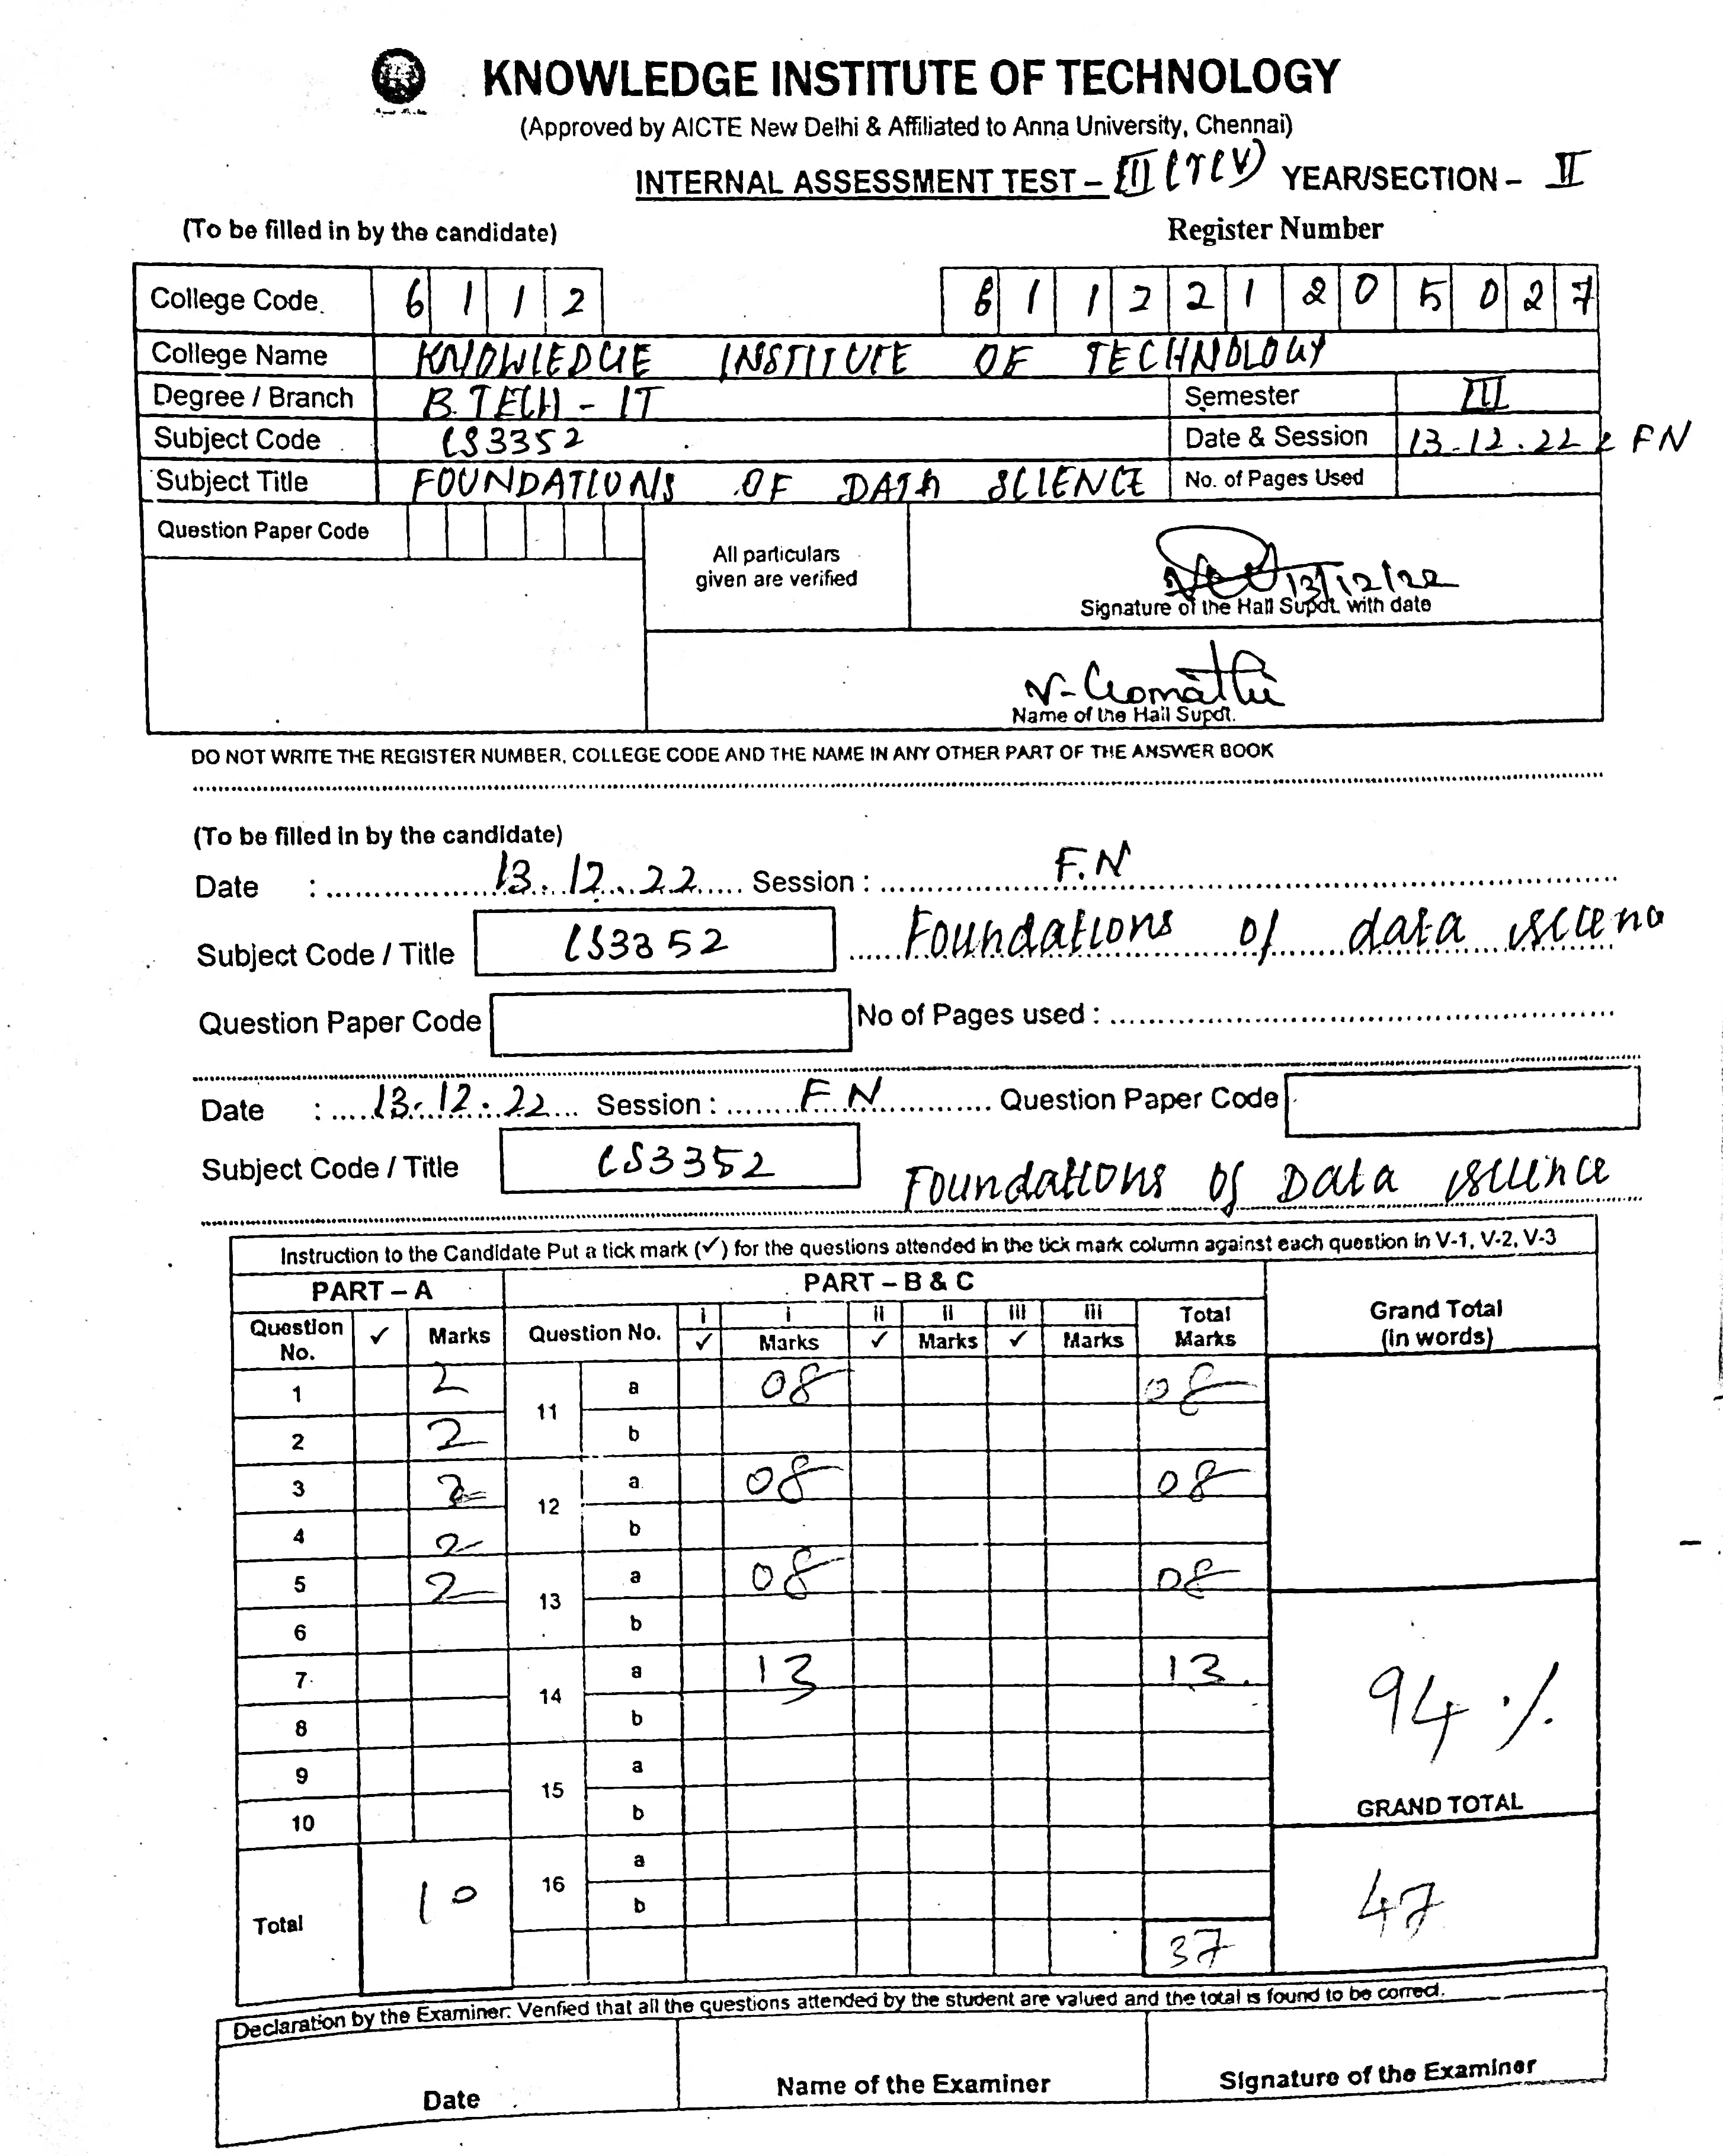 KNOWLEDGE INSTITUTE OF TECHNOLOGY
(Approved by AICTE New Delhi & Affiliated to Anna University, Chennai)
INTERNAL ASSESSMENT TEST – III YEAR/SECTION – II
(To be filled in by the candidate) Register Number
College Code. 6 1 1 2 6 1 1 2 2 1 2 0 5 0 2 7
College Name KNOWLEDGE INSTITUTE OF TECHNOLOGY
Degree / Branch B.TECH - IT Semester III
Subject Code CS3352 Date & Session 13.12.22 & FN
Subject Title FOUNDATIONS OF DATA SCIENCE No. of Pages Used
Question Paper Code
All particulars
given are verified
13/12/22
Signature of the Hall Supdt. with date
V. Gomathi
Name of the Hall Supdt.
DO NOT WRITE THE REGISTER NUMBER, COLLEGE CODE AND THE NAME IN ANY OTHER PART OF THE ANSWER BOOK
(To be filled in by the candidate)
Date : 13.12.22 Session : F.N
Subject Code / Title CS3352 Foundations of data scienc
Question Paper Code No of Pages used :
Date : 13.12.22 Session : FN Question Paper Code
Subject Code / Title CS3352 Foundations of Data science
Instruction to the Candidate Put a tick mark (✓) for the questions attended in the tick mark column against each question in V-1, V-2, V-3
PART – A PART – B & C Grand Total
(in words)
Question No. ✓ Marks Question No. i ✓ i Marks ii ✓ ii Marks iii ✓ iii Marks Total Marks
1 2 11 a 08 08
2 2 b
3 2 12 a 08 08
4 2 b
5 2 13 a 08 08
6 b
7 14 a 13 13.
8 b 94 %
9 15 a
10 b GRAND TOTAL
Total 10 16 a
b 47
37
Declaration by the Examiner: Verified that all the questions attended by the student are valued and the total is found to be correct.
Date Name of the Examiner Signature of the Examiner